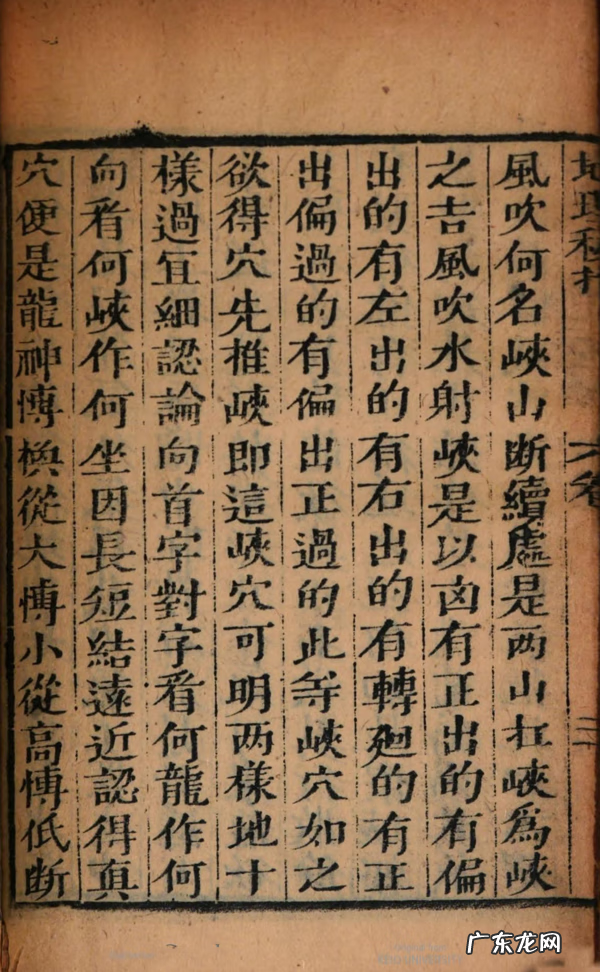 風吹何名峽山断續處是两山扛峽為峽
之吉風吹水射峽是以凶有正出的有偏
出的有左出的有右出的有轉廻的有正
出偏過的有偏出正過的此等峽穴如之
欲得穴先推峽即這峽穴可明两樣地十
樣過宜細認論向首字對字看何龍作何
向看何峽作何坐因長短結遠近認得真
穴便是龍神愽換從大愽小從高愽低断
六卷
三
广东龙网